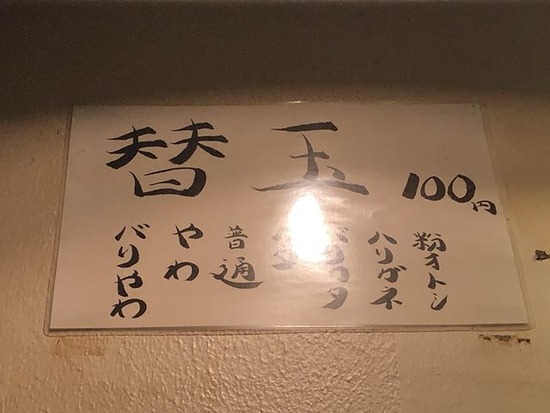 替玉 100円
粉オトシ
ハリガネ
バリカタ
カタ
普通
やわ
バリやわ